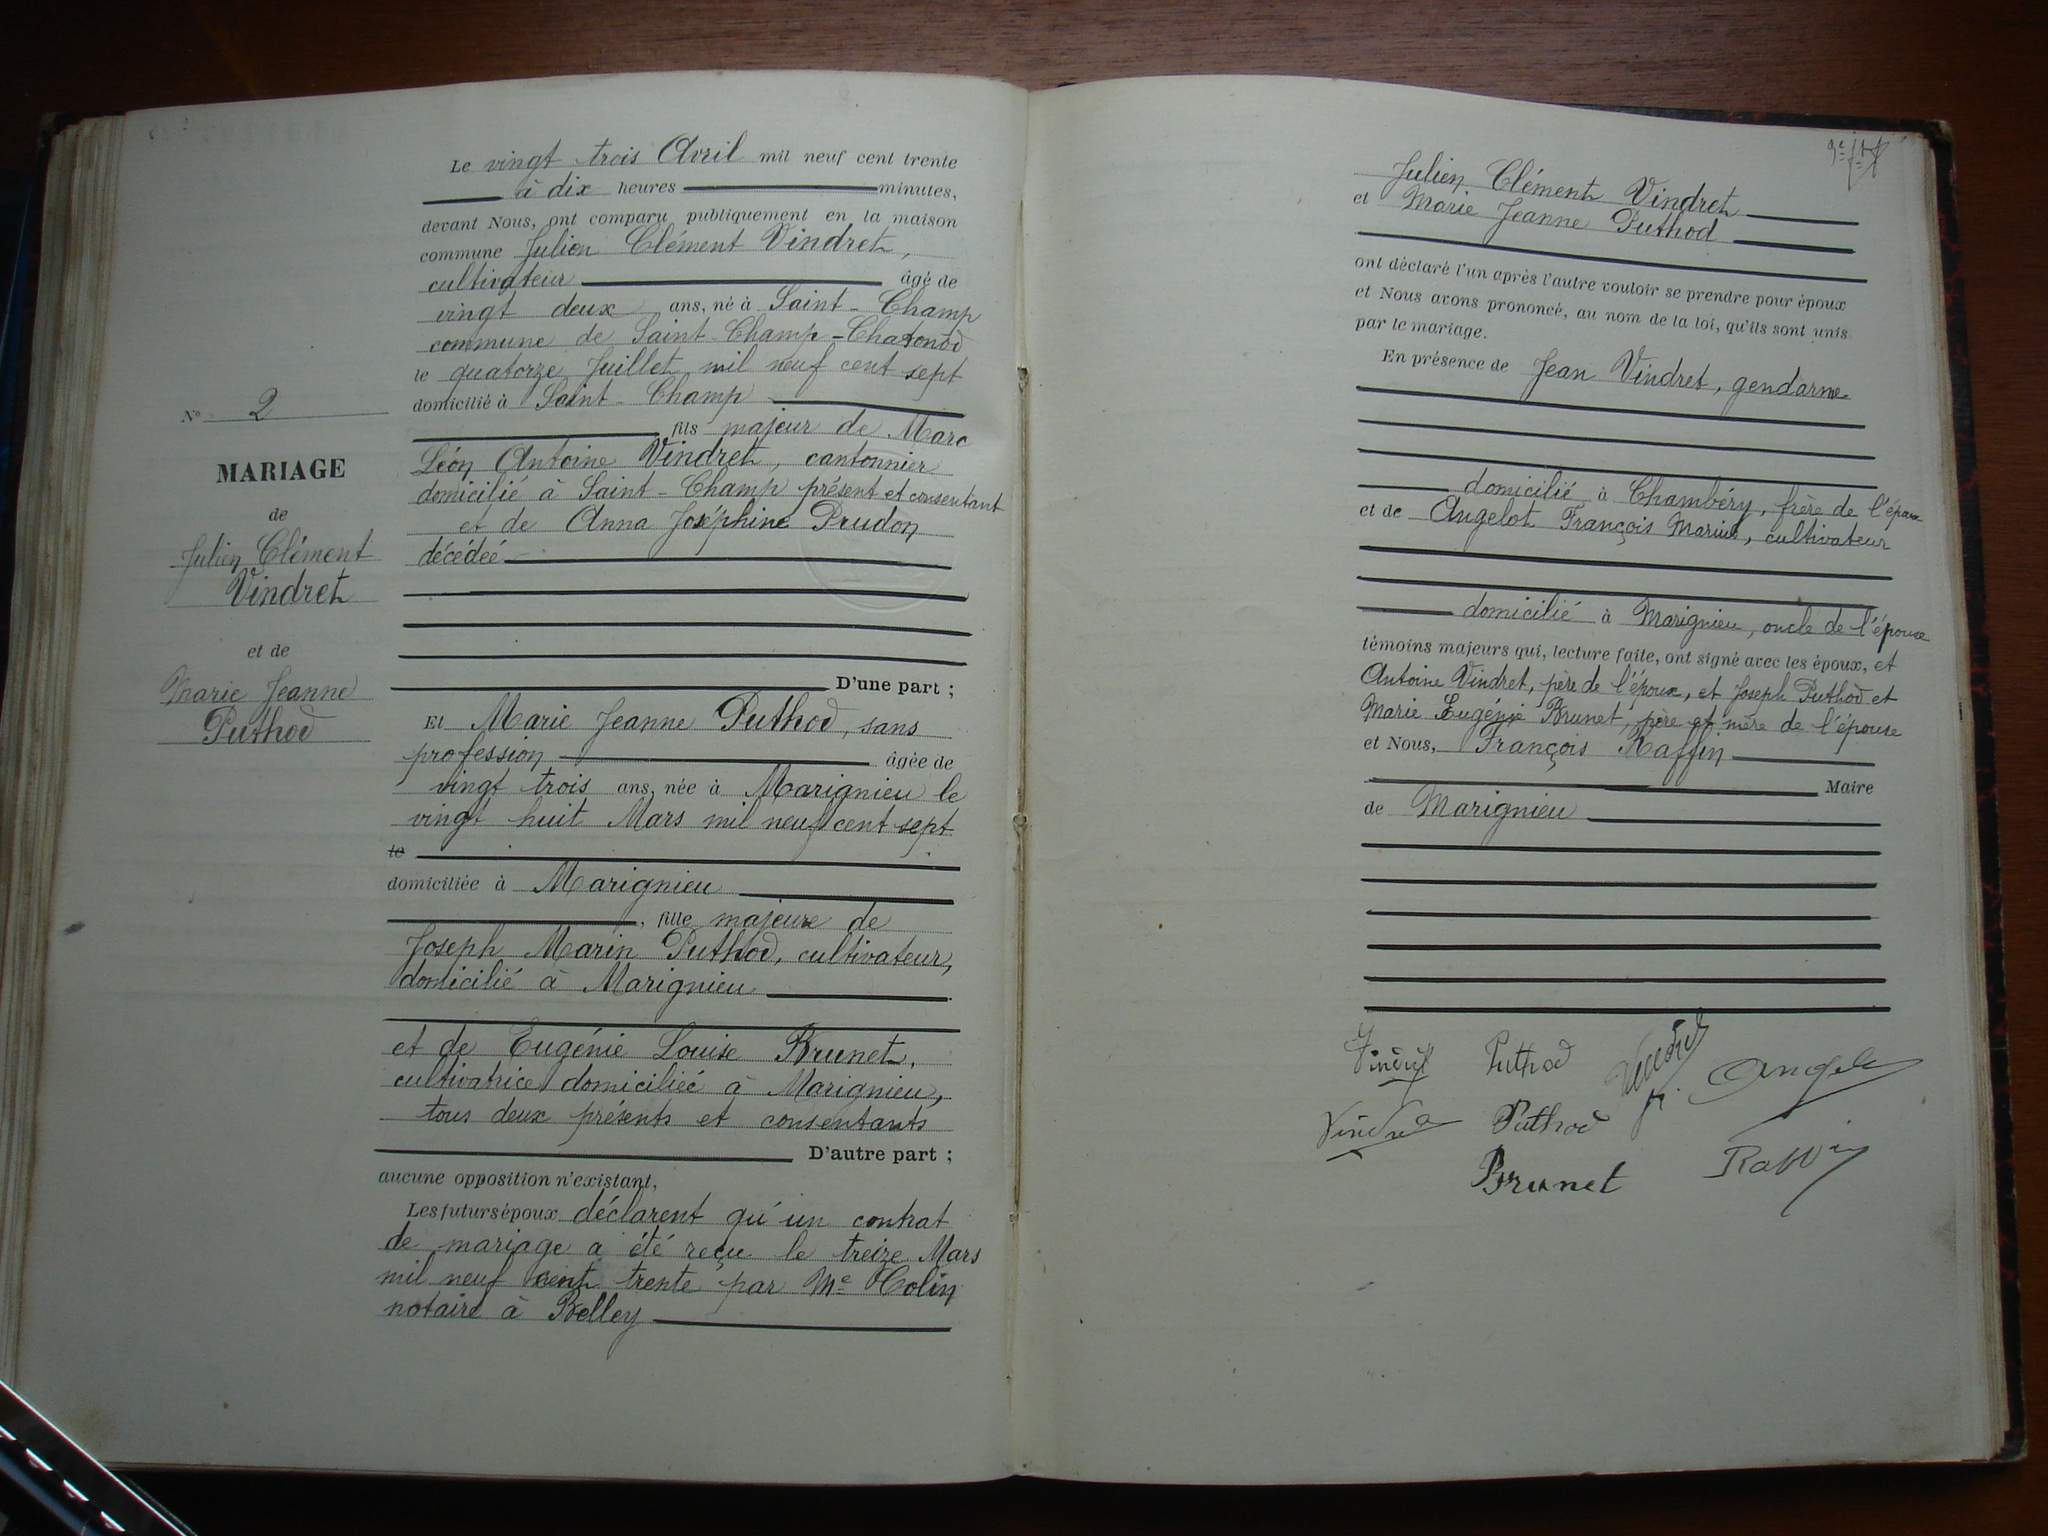 Le vingt trois Avril mil neuf cent trente
à dix heures minutes,
devant Nous, ont comparu publiquement en la maison
commune Julien Clément Vindret,
cultivateur âgé de
vingt deux ans, né à Saint-Champ
commune de Saint-Champ-Chatonod
le quatorze Juillet mil neuf cent sept
domicilié à Saint-Champ
fils majeur de Marc
Léon Antoine Vindret, cantonnier
domicilié à Saint-Champ présent et consentant
et de Anna Joséphine Prudon
décédée
D'une part ;
Et Marie Jeanne Puthod, sans
profession âgée de
vingt trois ans, née à Marignieu le
vingt huit Mars mil neuf cent sept
le
domiciliée à Marignieu
, fille majeure de
Joseph Marin Puthod, cultivateur,
domicilié à Marignieu
et de Eugénie Louise Brunet,
cultivatrice domiciliée à Marignieu,
tous deux présents et consentants
D'autre part ;
aucune opposition n'existant,
Les futurs époux déclarent qu'un contrat
de mariage a été reçu le treize Mars
mil neuf cent trente par Me Colin
notaire à Belley
No 2
MARIAGE
de
Julien Clément
Vindret
et de
Marie Jeanne
Puthod
Julien Clément Vindret
et Marie Jeanne Puthod
ont déclaré l'un après l'autre vouloir se prendre pour époux
et Nous avons prononcé, au nom de la loi, qu'ils sont unis
par le mariage.
En présence de Jean Vindret, gendarme
domicilié à Chambéry, frère de l'époux
et de Angelot François Marius, cultivateur
domicilié à Marignieu, oncle de l'épouse
témoins majeurs qui, lecture faite, ont signé avec les époux, et
Antoine Vindret, père de l'époux, et Joseph Puthod et
Marie Eugénie Brunet, père et mère de l'épouse
et Nous, François Raffin
Maire
de Marignieu
Vindret Puthod Vindret Angelot
Vindret Puthod
Brunet Raffin